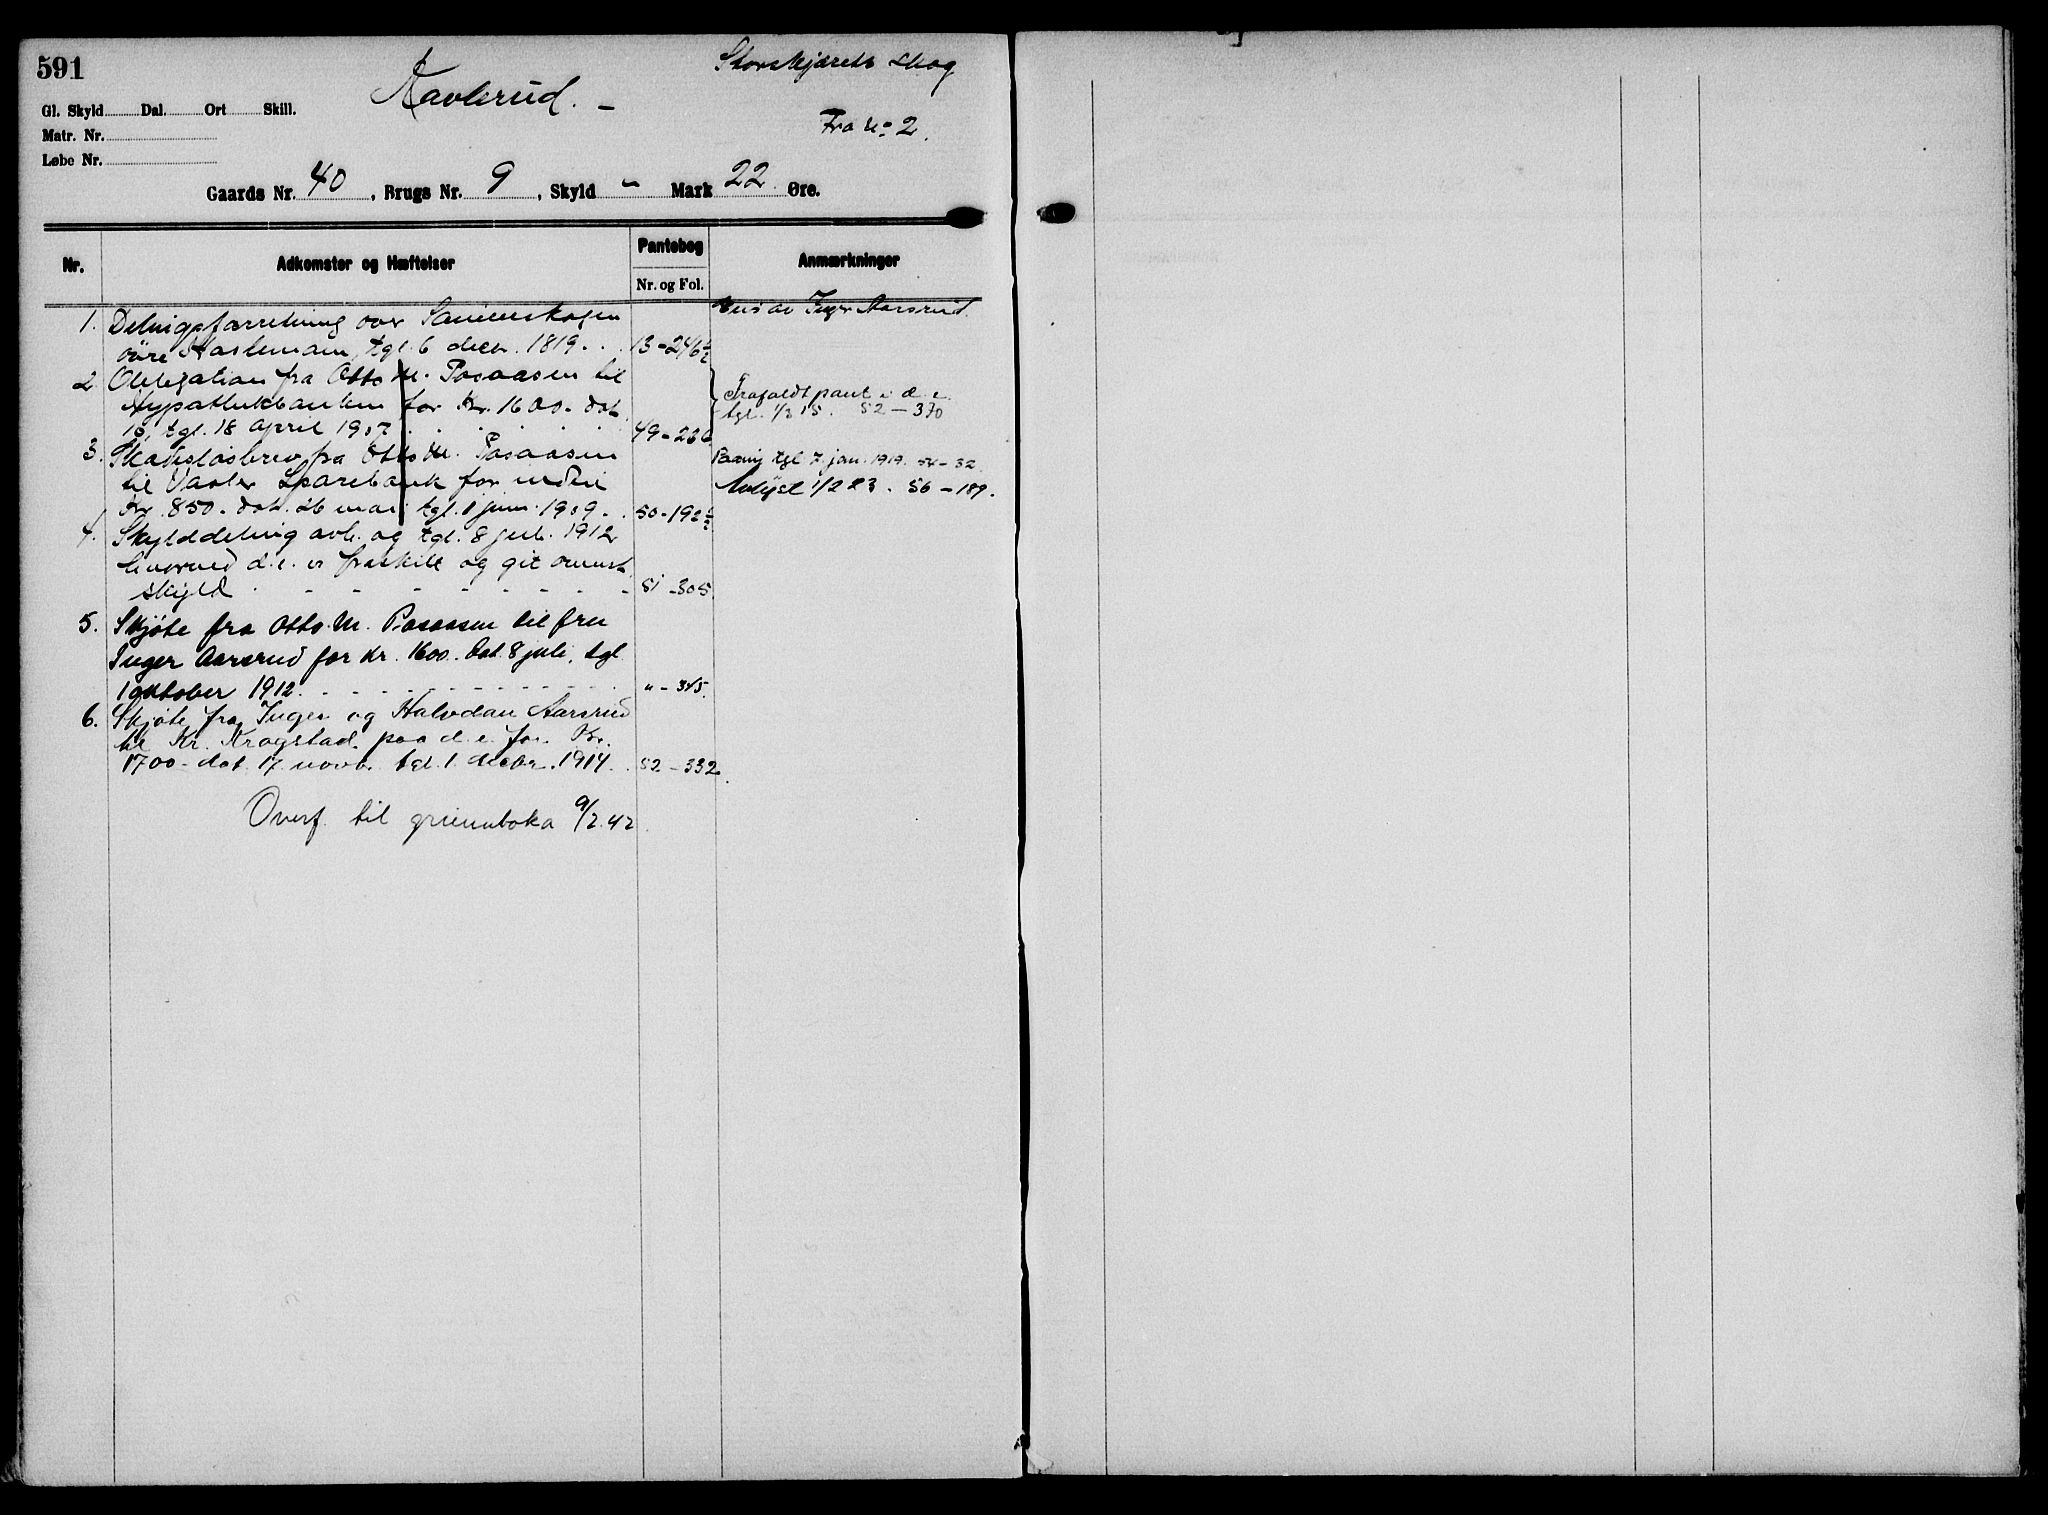 591
Storskjærets skog
Navlerud. –
Gl. Skyld Dal. Ort Skill.
Fra No 2.
Matr. Nr.
Løbe Nr.
Gaards Nr. 40, Brugs Nr. 9, Skyld – Mark 22 Øre.
Nr. Adkomster og Hæftelser Pantebog Anmærkninger
Nr. og Fol.
1. Delingsforretning over skogen Inger Aarsrud.
øvre Haslemoen, tgl. 6 decb. 1819. 13-246½
2. Obligation fra Otto M. Posaasen til
Hypothekbanken for Kr. 1600. dat. Frafaldt pant i d. e.
tgl. 18 april 1907. 49-226 tgl. 52-370
3. Skadesløsbrev fra Otto M. Posaasen tgl. 7 jan. 1919. 54-32.
til Vaaler Sparebank for inden Avlyst 1/2 23. 56-189.
Kr. 850. dat. 26 mai tgl. 1 juni 1909. 50-192½
4. Skylddeling avh. og tgl. 8 juli 1912
hvorved d. e. er fraskilt og git ovenst.
skyld 51-305.
5. Skjøte fra Otto M. Posaasen til fru
Inger Aarsrud for Kr. 1600. dat. 8 juli, tgl.
1 oktober 1912. " - 345.
6. Skjøte fra Inger og Halvdan Aarsrud
til Kr. Krogstad paa d. e. for Kr.
1700- dat. 17 novb. tgl. 1 decbr. 1914. 52-332.
Overf. til grunnboka 9/2.42.